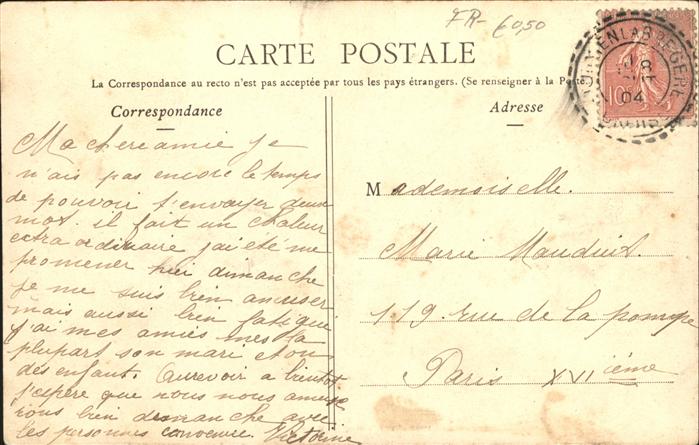 FR- 60,50
CARTE POSTALE
La Correspondance au recto n'est pas acceptée par tous les pays étrangers. (Se renseigner à la Poste.
Correspondance
Adresse
Ma chere amie je
n'ais pas encore le temps
de pouvoir t'envoyer deux
mot. il fait un chaleur
extra ordinaire j'ai été me
promener dimanche
je me suis bien amuser
mais aussi bien fatigué
j'ai mes amies
plupart son mari et
des enfant. Aurevoir a bientot
j'espère que nous nous
bien demanche avec
les personnes Victorine
Mademoiselle.
Marie Mauduit.
119 rue de la pompe
Paris XVI ième
10
04